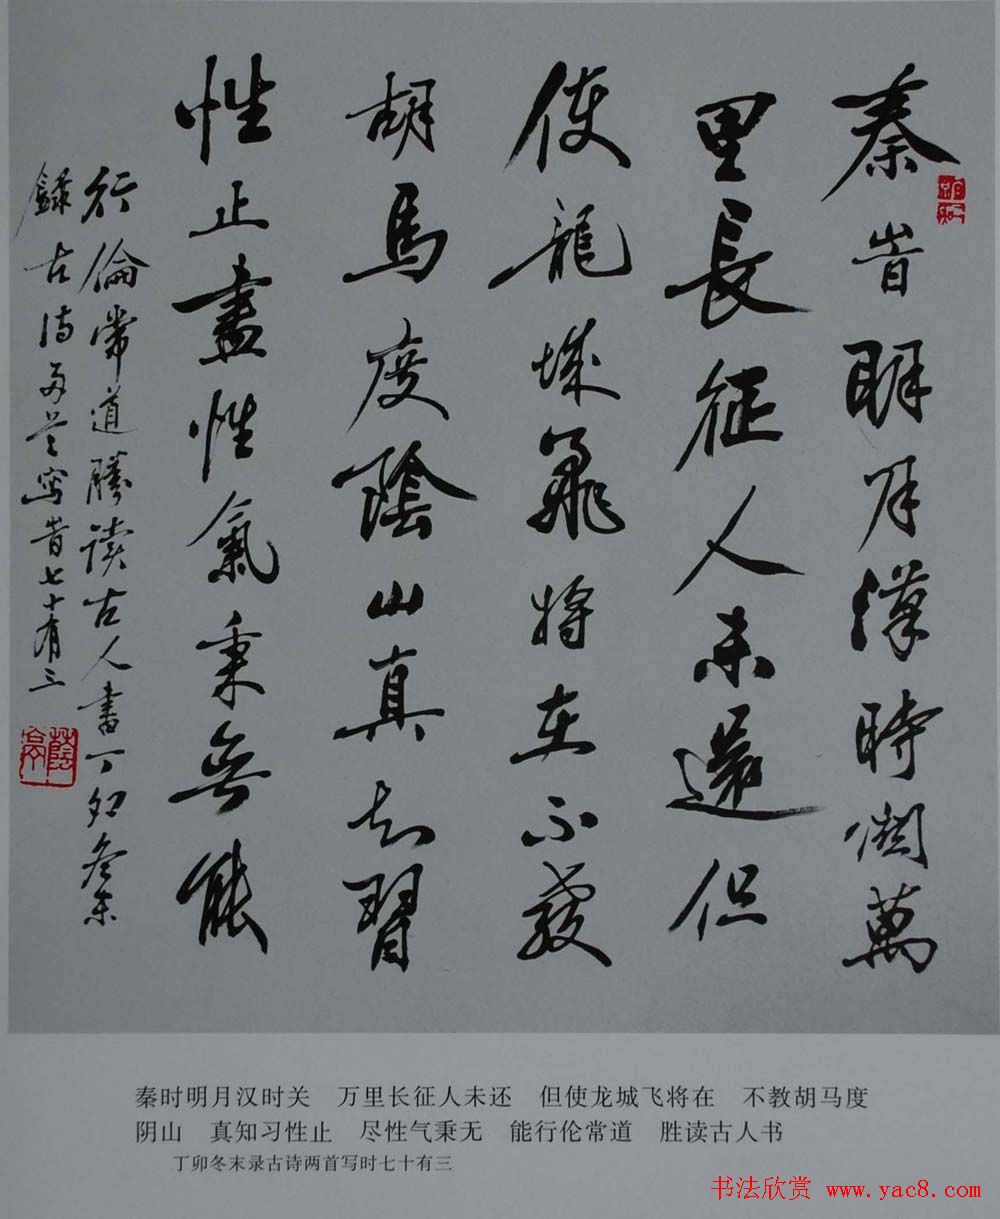 秦旹明月漢時関萬
里長征人未還但
使龍城飛將在不教
胡馬度陰山真知習
性止盡性氣秉無能
行倫常道勝读古人書丁卯冬末
録古诗两首寫旹七十有三
秦时明月汉时关　万里长征人未还　但使龙城飞将在　不教胡马度
阴山　真知习性止　尽性气秉无　能行伦常道　胜读古人书
丁卯冬末录古诗两首写时七十有三
书法欣赏 www.yac8.com